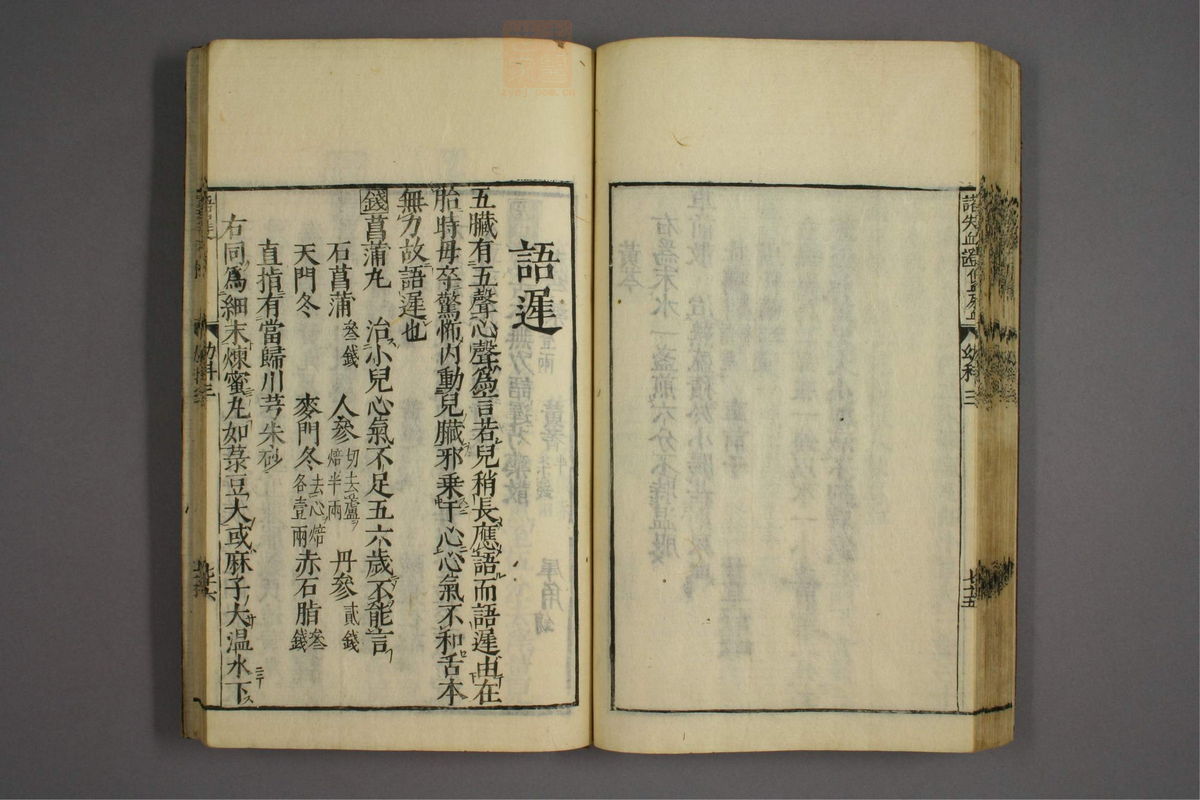 幼科 三
七十五
語遲
五臟有五聲心聲爲言若兒稍長應語而語遲由在
胎時母卒驚怖內動兒臟邪乘于心心氣不和舌本
無力故語遲也
錢 菖蒲丸 治小兒心氣不足五六歲不能言
石菖蒲 叄錢 人參 切去蘆焙半兩 丹參 貳錢
天門冬 麥門冬 去心焙各壹兩 赤石脂 叄錢
直指有當歸川芎朱砂
右同爲細末煉蜜丸如菉豆大或麻子大温水下